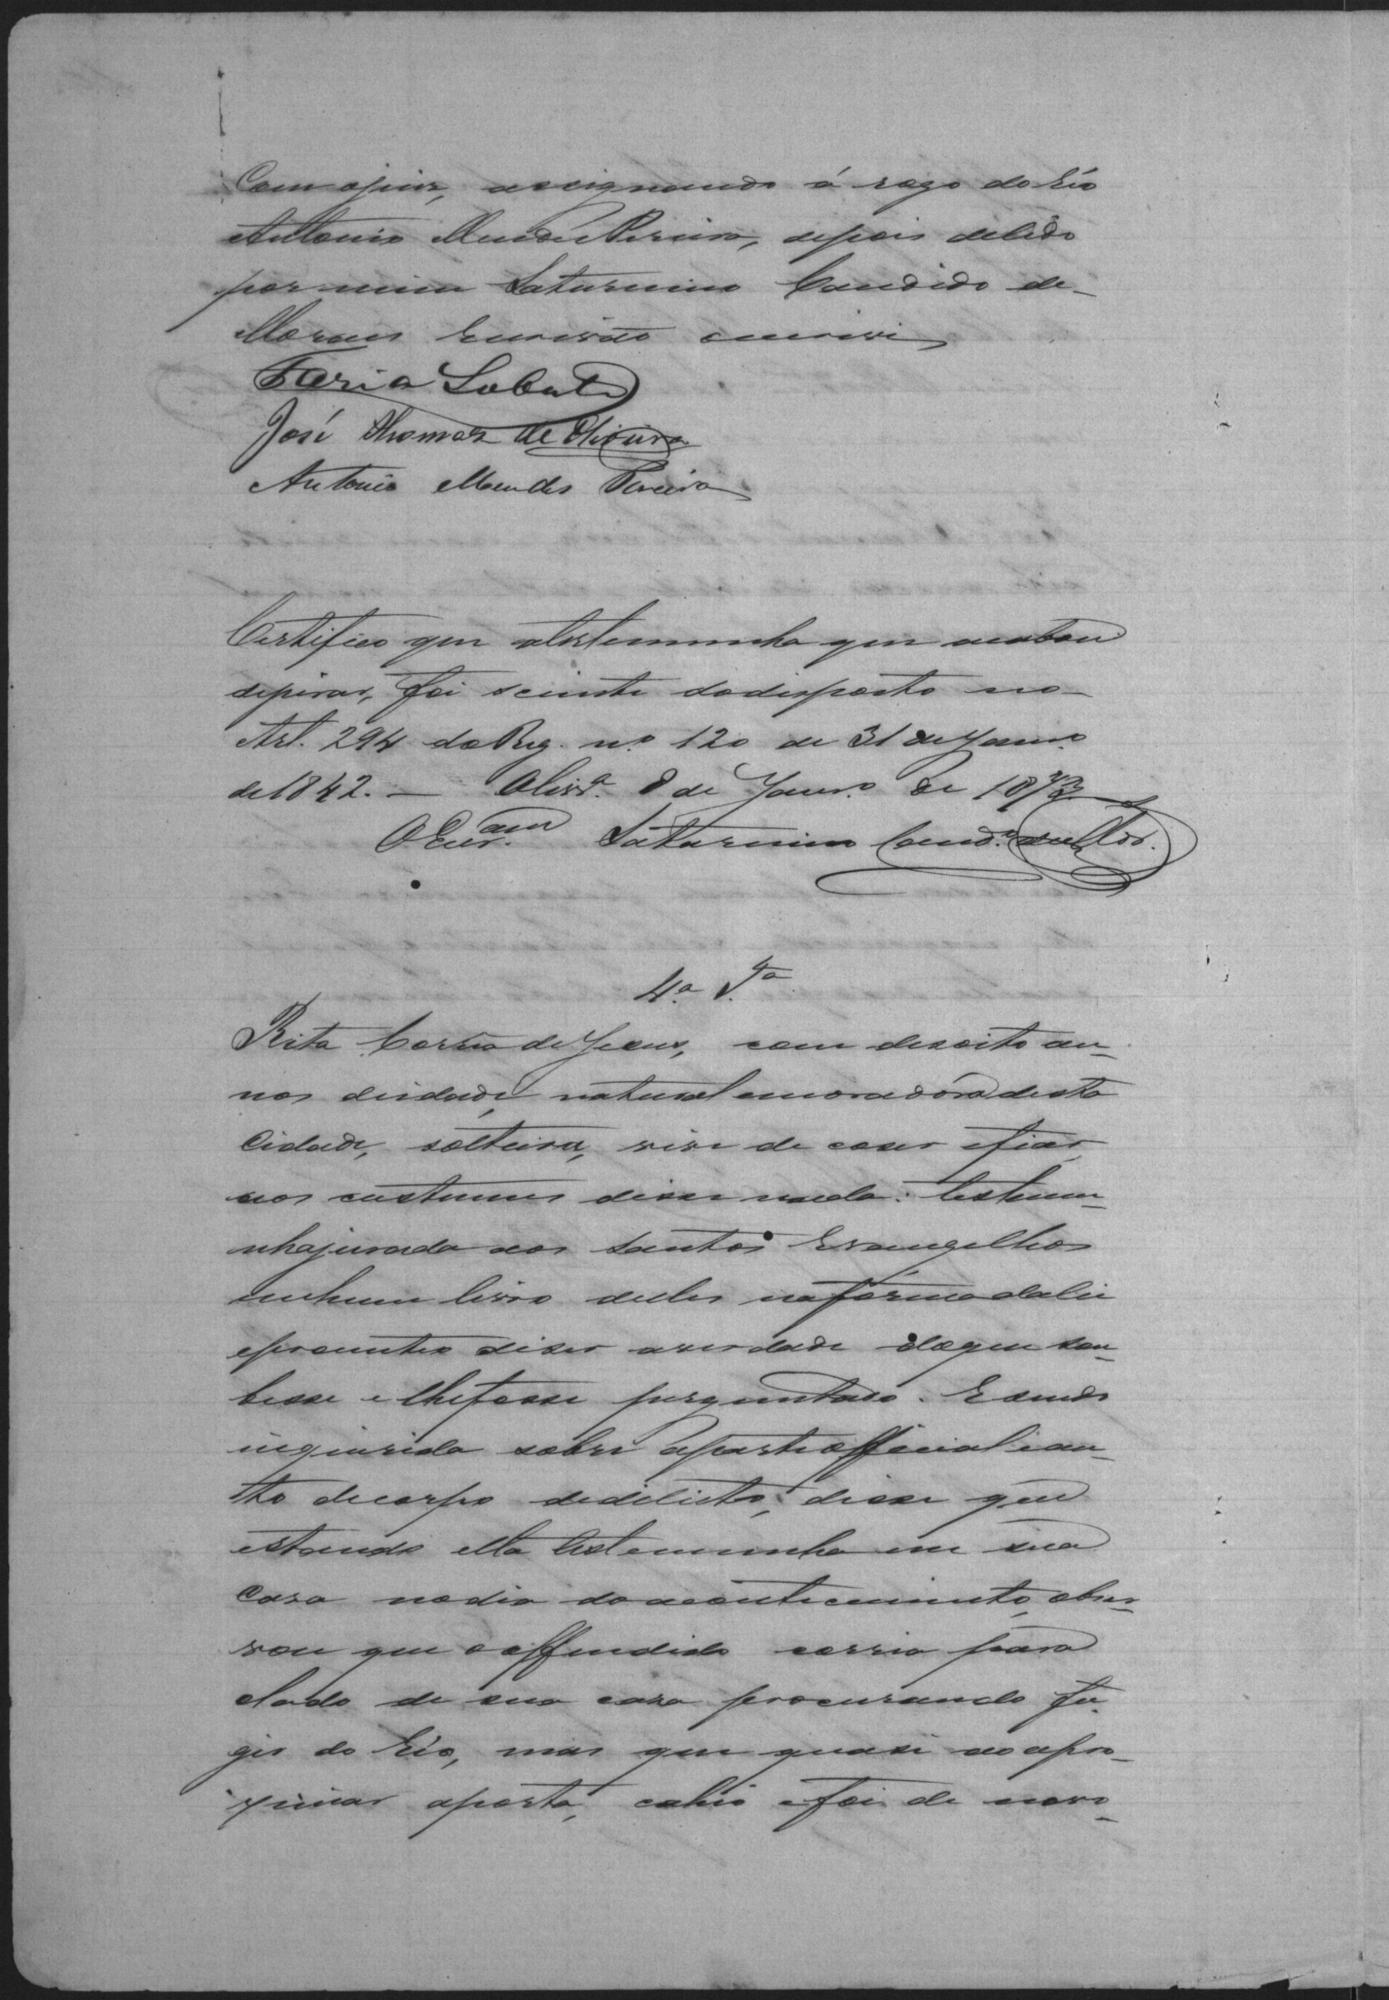 Com o juiz, assignando á rogo do Réo
Antonio Mendes Pereira, depois de lido
por mim Saturnino Candido de
Moraes Escrivão escrivi
Faria Lobato
José Thomaz de Oliveira
Antonio Mendes Pereira
Certifico que a testemunha que acabou
depivar, foi sciente do disposto no
Art. 294 do Reg. nº 120 de 31 de Janrº
de 1842. — Olivrª 8 de Janrº de 1873
O Escram Saturnino Candº de Mor.
4ª Tª
Rita Corrêa de Jesus, com desoito an-
nos deidade, natural e moradôra desta
Cidade, solteira, vive de coser e fiar,
aos custumes disse nada: testemu-
nha jurada aos Santos Evangelhos
em hum livro deles na fórma da lei
e prometeo diser a verdade do que sou-
besse e lhe fosse perguntado. E sendo
inquirida sobre a parte official e au-
tto de corpo de delicto; disse que
estando ella testemunha em sua
Casa no dia do acontecimento, obser-
vou que o offendido corria para
o lado de sua casa procurando fu-
gir do Réo, mas que quasi ao apro-
ximar a porta, cahio e foi de novo